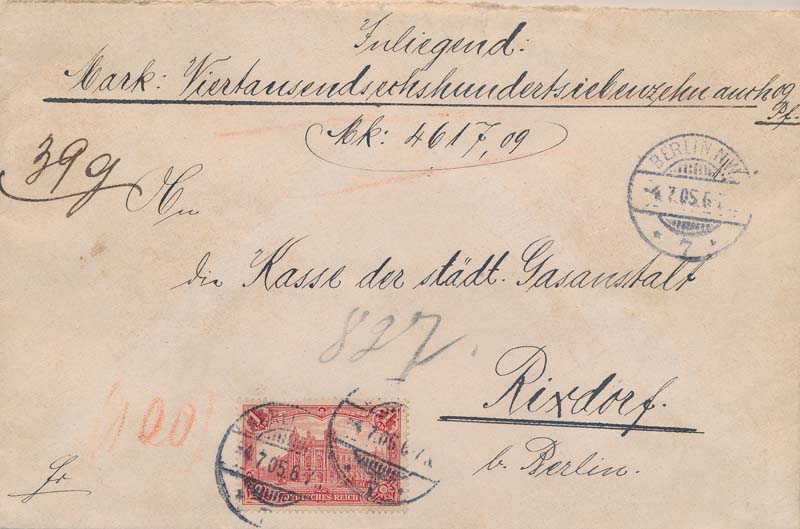 Inliegend:
Mark: Viertausendsechshundertsiebenzehn auch 09
Pf.
Mk: 4617,09
39 g
An
BERLIN NW
4.7.05.6-7
* 7 *
die Kasse der städt. Gasanstalt
827.
Rixdorf.
(120)
b. Berlin.
Fr
4.7.05.6-7
DEUTSCHES REICH